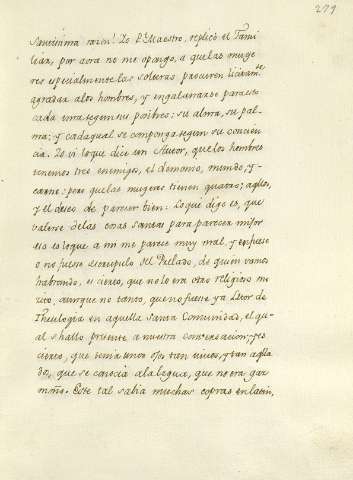 279
Santissima razon! Yo P. Maestro, replicò el Fami
liar, por aora no me opongo, a quelas muge
res especialmente las solteras procuren licitamte
agradar alos hombres, y engalanarse para esto
cada una segun su posibre: su alma, su pal-
ma; y cada qual se componga segun su concien
cia. Yo vi lo que dice un Autor, que los hombres
tenemos tres enemigos, el demonio, mundo, y
carne: pero que las mugeres tienen quatro; aqllos,
y el deseo de parecer bien. Lo que digo es, que
valerse de las cosas santas para parecer mejor
eso es lo que a mi me parece muy mal. y en fuese
o no fuese escrupulo del Prelado, de quien vamos
habrando, es cierto, que no lo era otro religioso me
nito, aunque no tanto, que no fuese ya Letor de
Theulugia en aquella Santa Comunidad, el qu-
al se hallò presente a nuestra conversacion; y es
cierto, que tenia unos ojos tan vivos, y tan agila
dos, que se conocia ala legua, que no era gar
mño. Este tal sabia muchas copras en latin,